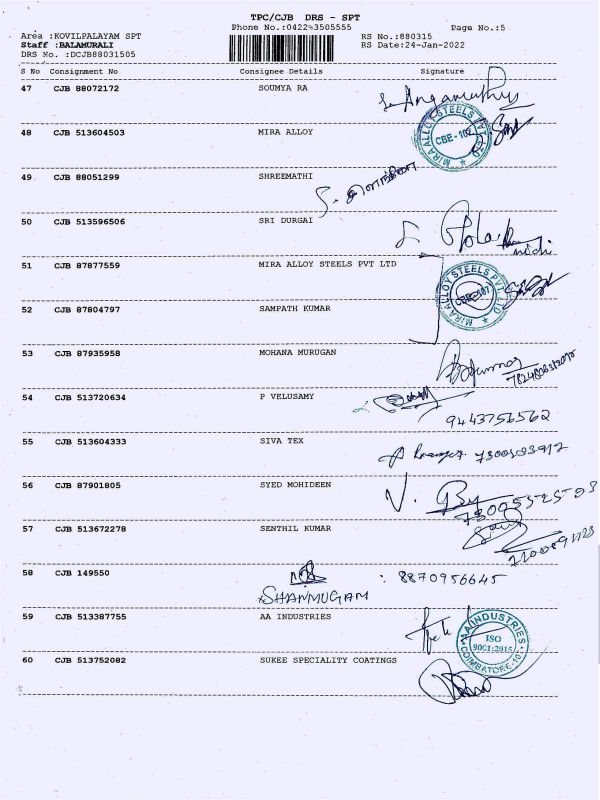 TPC/CJB DRS - SPT
Phone No.:0422-3505555
Page No.:5
Area :KOVILPALAYAM SPT
RS No.:880315
Staff :BALAMURALI
RS Date:24-Jan-2022
DRS No. :DCJB88031505
S No Consignment No Consignee Details Signature
47 CJB 88072172 SOUMYA RA
48 CJB 513604503 MIRA ALLOY
MIRA ALLOY STEELS PVT. LTD
CBE - 107
49 CJB 88051299 SHREEMATHI
50 CJB 513596506 SRI DURGAI
51 CJB 87877559 MIRA ALLOY STEELS PVT LTD
MIRA ALLOY STEELS PVT. LTD
CBE-107
52 CJB 87804797 SAMPATH KUMAR
53 CJB 87935958 MOHANA MURUGAN
54 CJB 513720634 P VELUSAMY
9443756562
55 CJB 513604333 SIVA TEX
56 CJB 87901805 SYED MOHIDEEN
57 CJB 513672278 SENTHIL KUMAR
58 CJB 149550
: 8870956645
SHANMUGAM
59 CJB 513387755 AA INDUSTRIES
AA INDUSTRIES
ISO
9001:2015
COIMBATORE-10
60 CJB 513752082 SUKEE SPECIALITY COATINGS